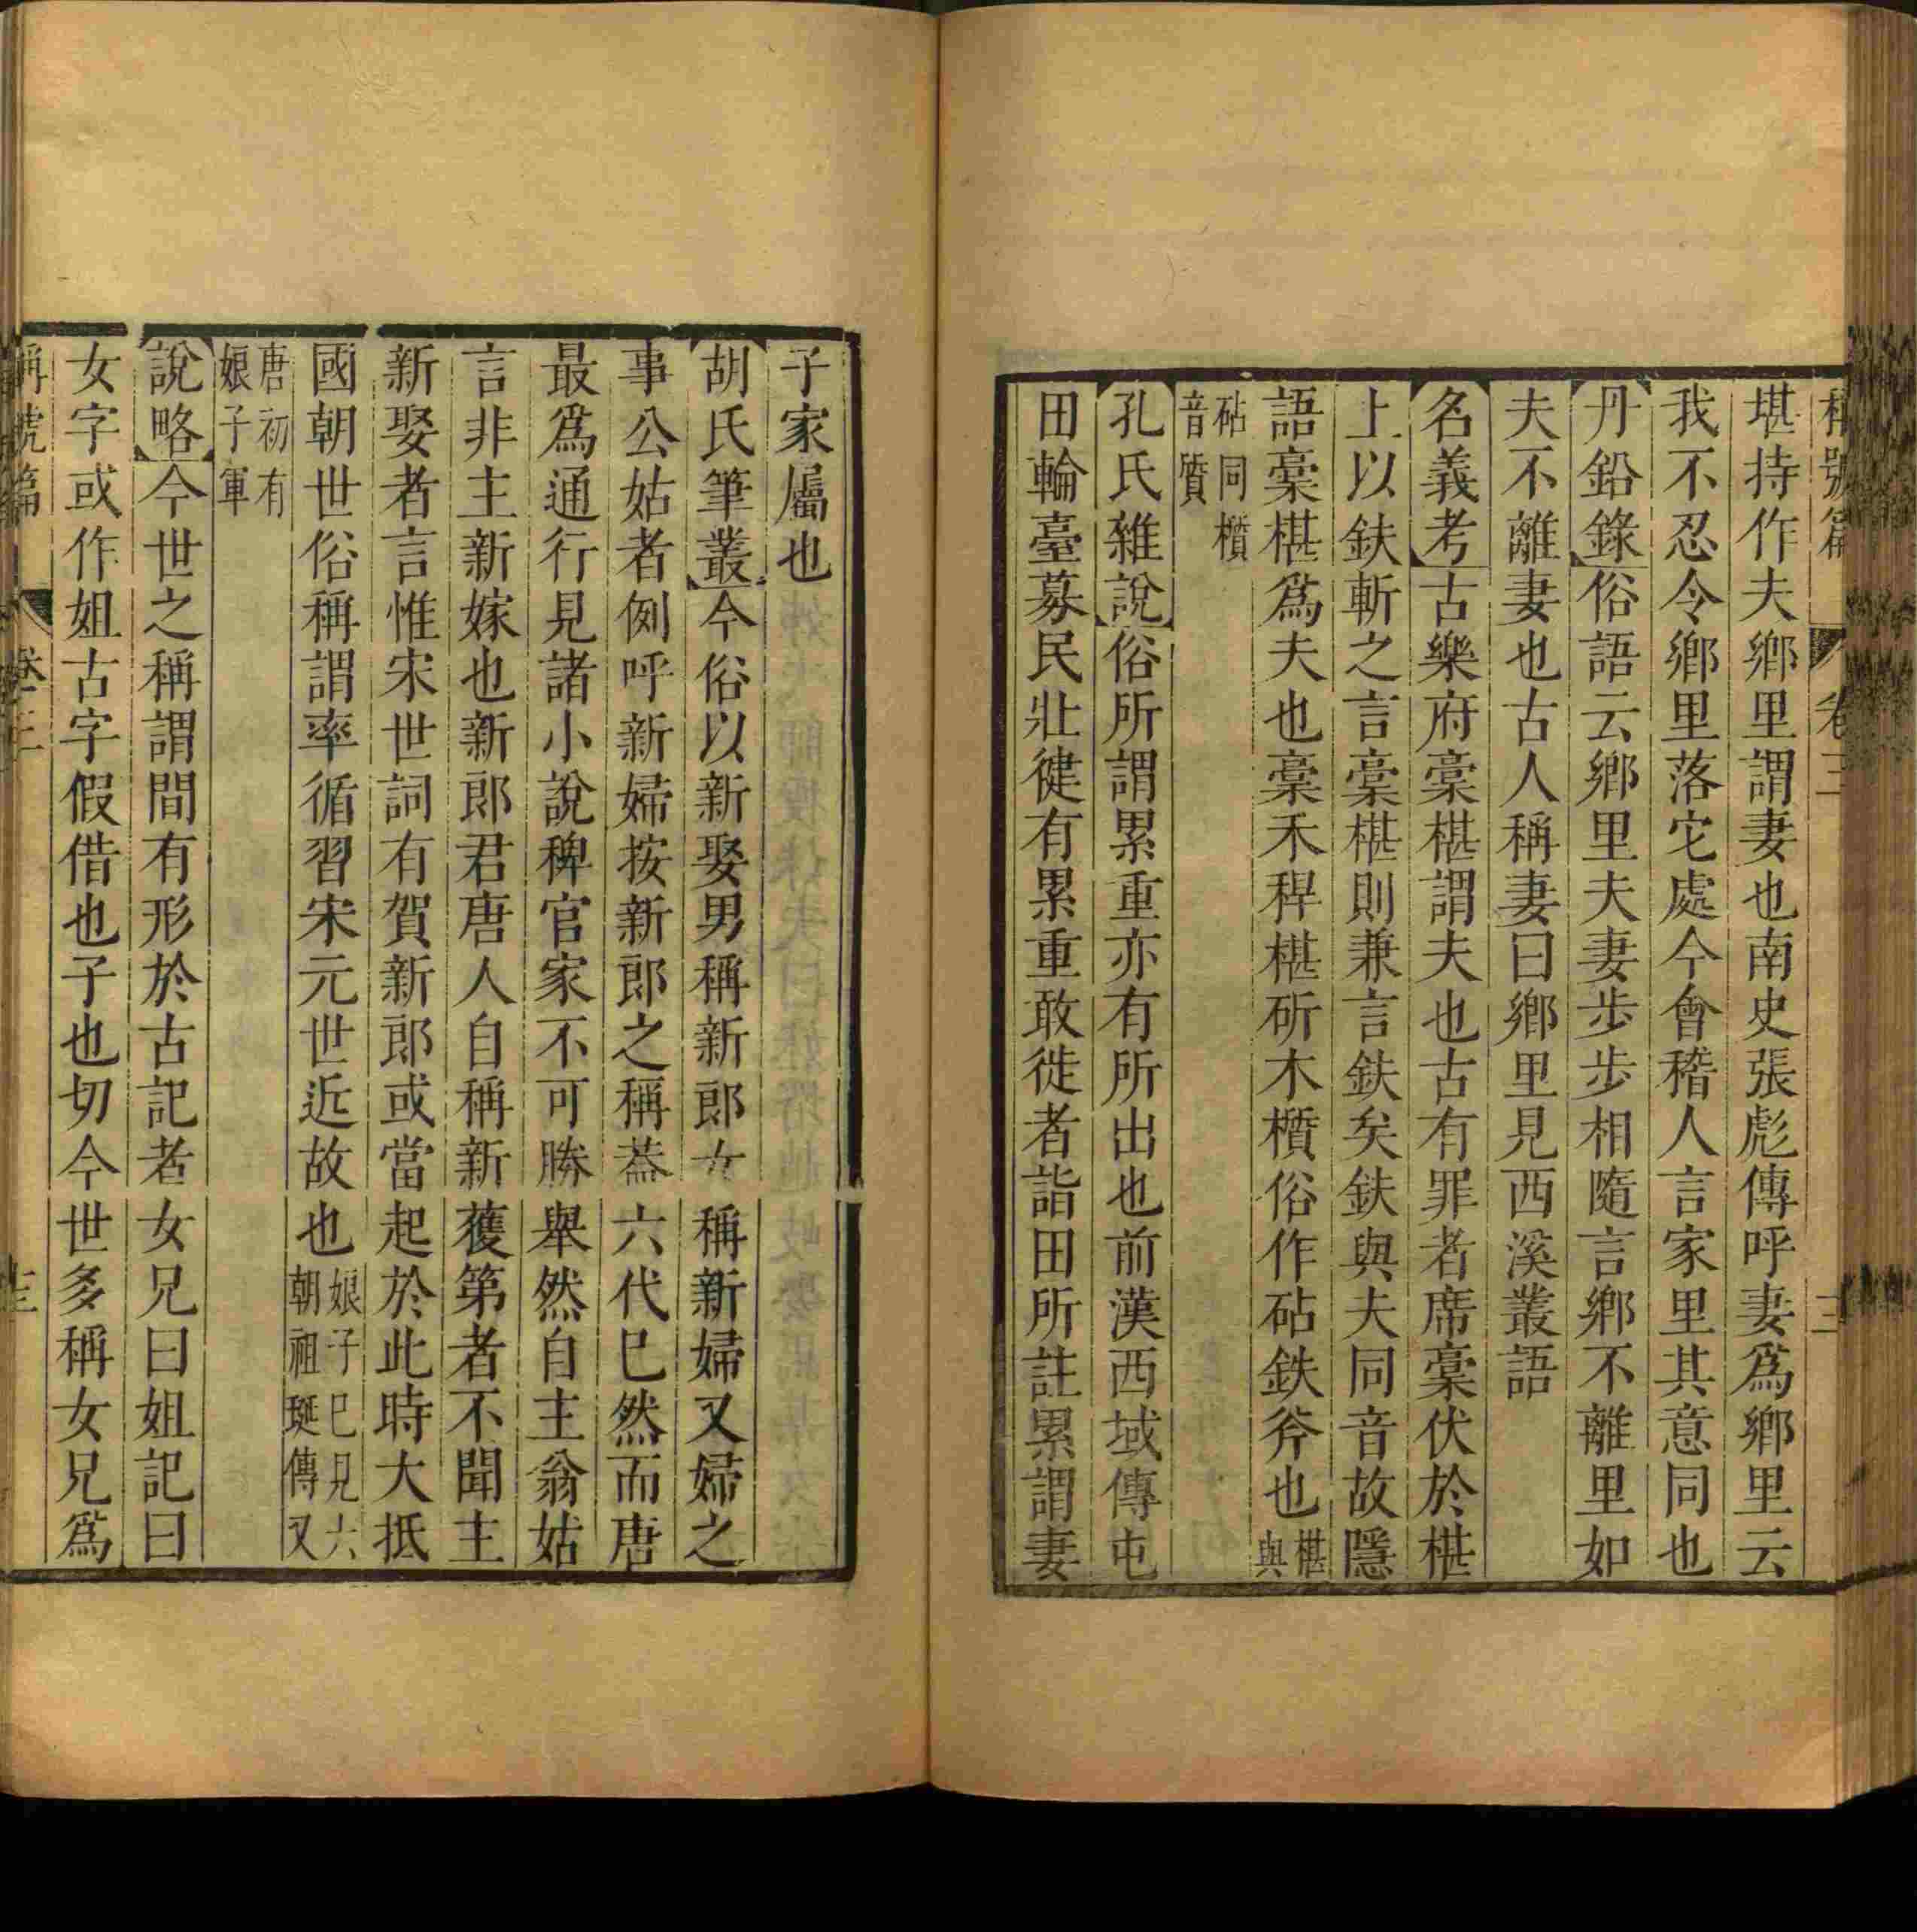 稱號篇 卷三 三
堪持作夫鄉里謂妻也南史張彪傳呼妻爲鄉里云
我不忍令鄉里落它處今會稽人言家里其意同也
丹鉛錄俗語云鄉里夫妻步步相隨言鄉不離里如
夫不離妻也古人稱妻曰鄉里見西溪叢語
名義考古樂府稾椹謂夫也古有罪者席稾伏於椹
上以鈇斬之言稾椹則兼言鈇矣鈇與夫同音故隱
語稾椹爲夫也稾禾稈椹斫木櫍俗作砧鈇斧也椹與
砧同櫍音質
孔氏雜說俗所謂累重亦有所出也前漢西域傳屯
田輪臺募民壯健有累重敢徙者詣田所註累謂妻
子家屬也
胡氏筆叢今俗以新娶男稱新郎女稱新婦又婦之
事公姑者例呼新婦按新郎之稱葢六代已然而唐
最爲通行見諸小說稗官家不可勝舉然自主翁姑
言非主新嫁也新郎君唐人自稱新獲第者不聞主
新娶者言惟宋世詞有賀新郎或當起於此時大抵
國朝世俗稱謂率循習宋元世近故也娘子已見六朝祖珽傳又
唐初有娘子軍
說略今世之稱謂間有形於古記者女兄曰姐記曰
女字或作姐古字假借也子也切今世多稱女兄爲
稱號篇 卷三 三